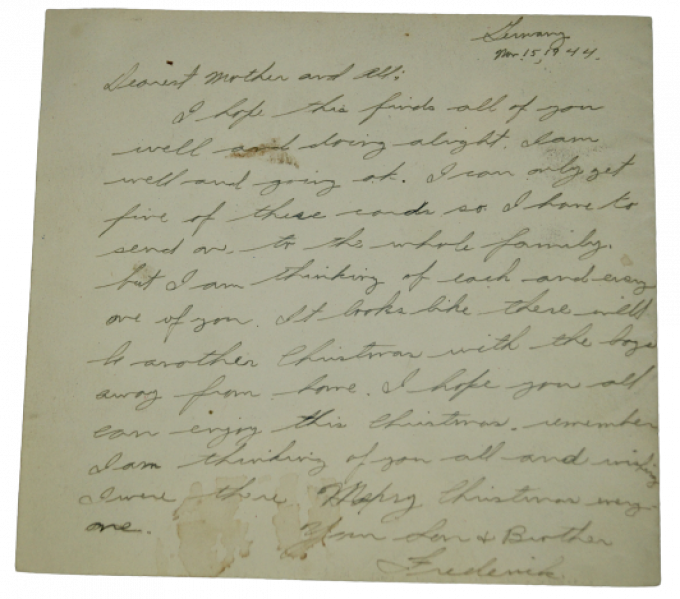 Germany
Nov. 15, 1944.
Dearest Mother and All:
I hope this finds all of you
well and doing alright. I am
well and going ok. I can only get
five of these cards so I have to
send one to the whole family.
but I am thinking of each and every
one of you. It looks like there will
be another Christmas with the boys
away from home. I hope you all
can enjoy this Christmas. remember
I am thinking of you all and wishing
I were there. Merry Christmas every-
one.
Your Son & Brother
Frederick